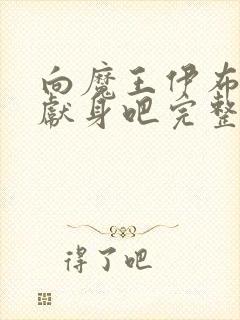 向魔王伊布
献身吧完整
得了吧